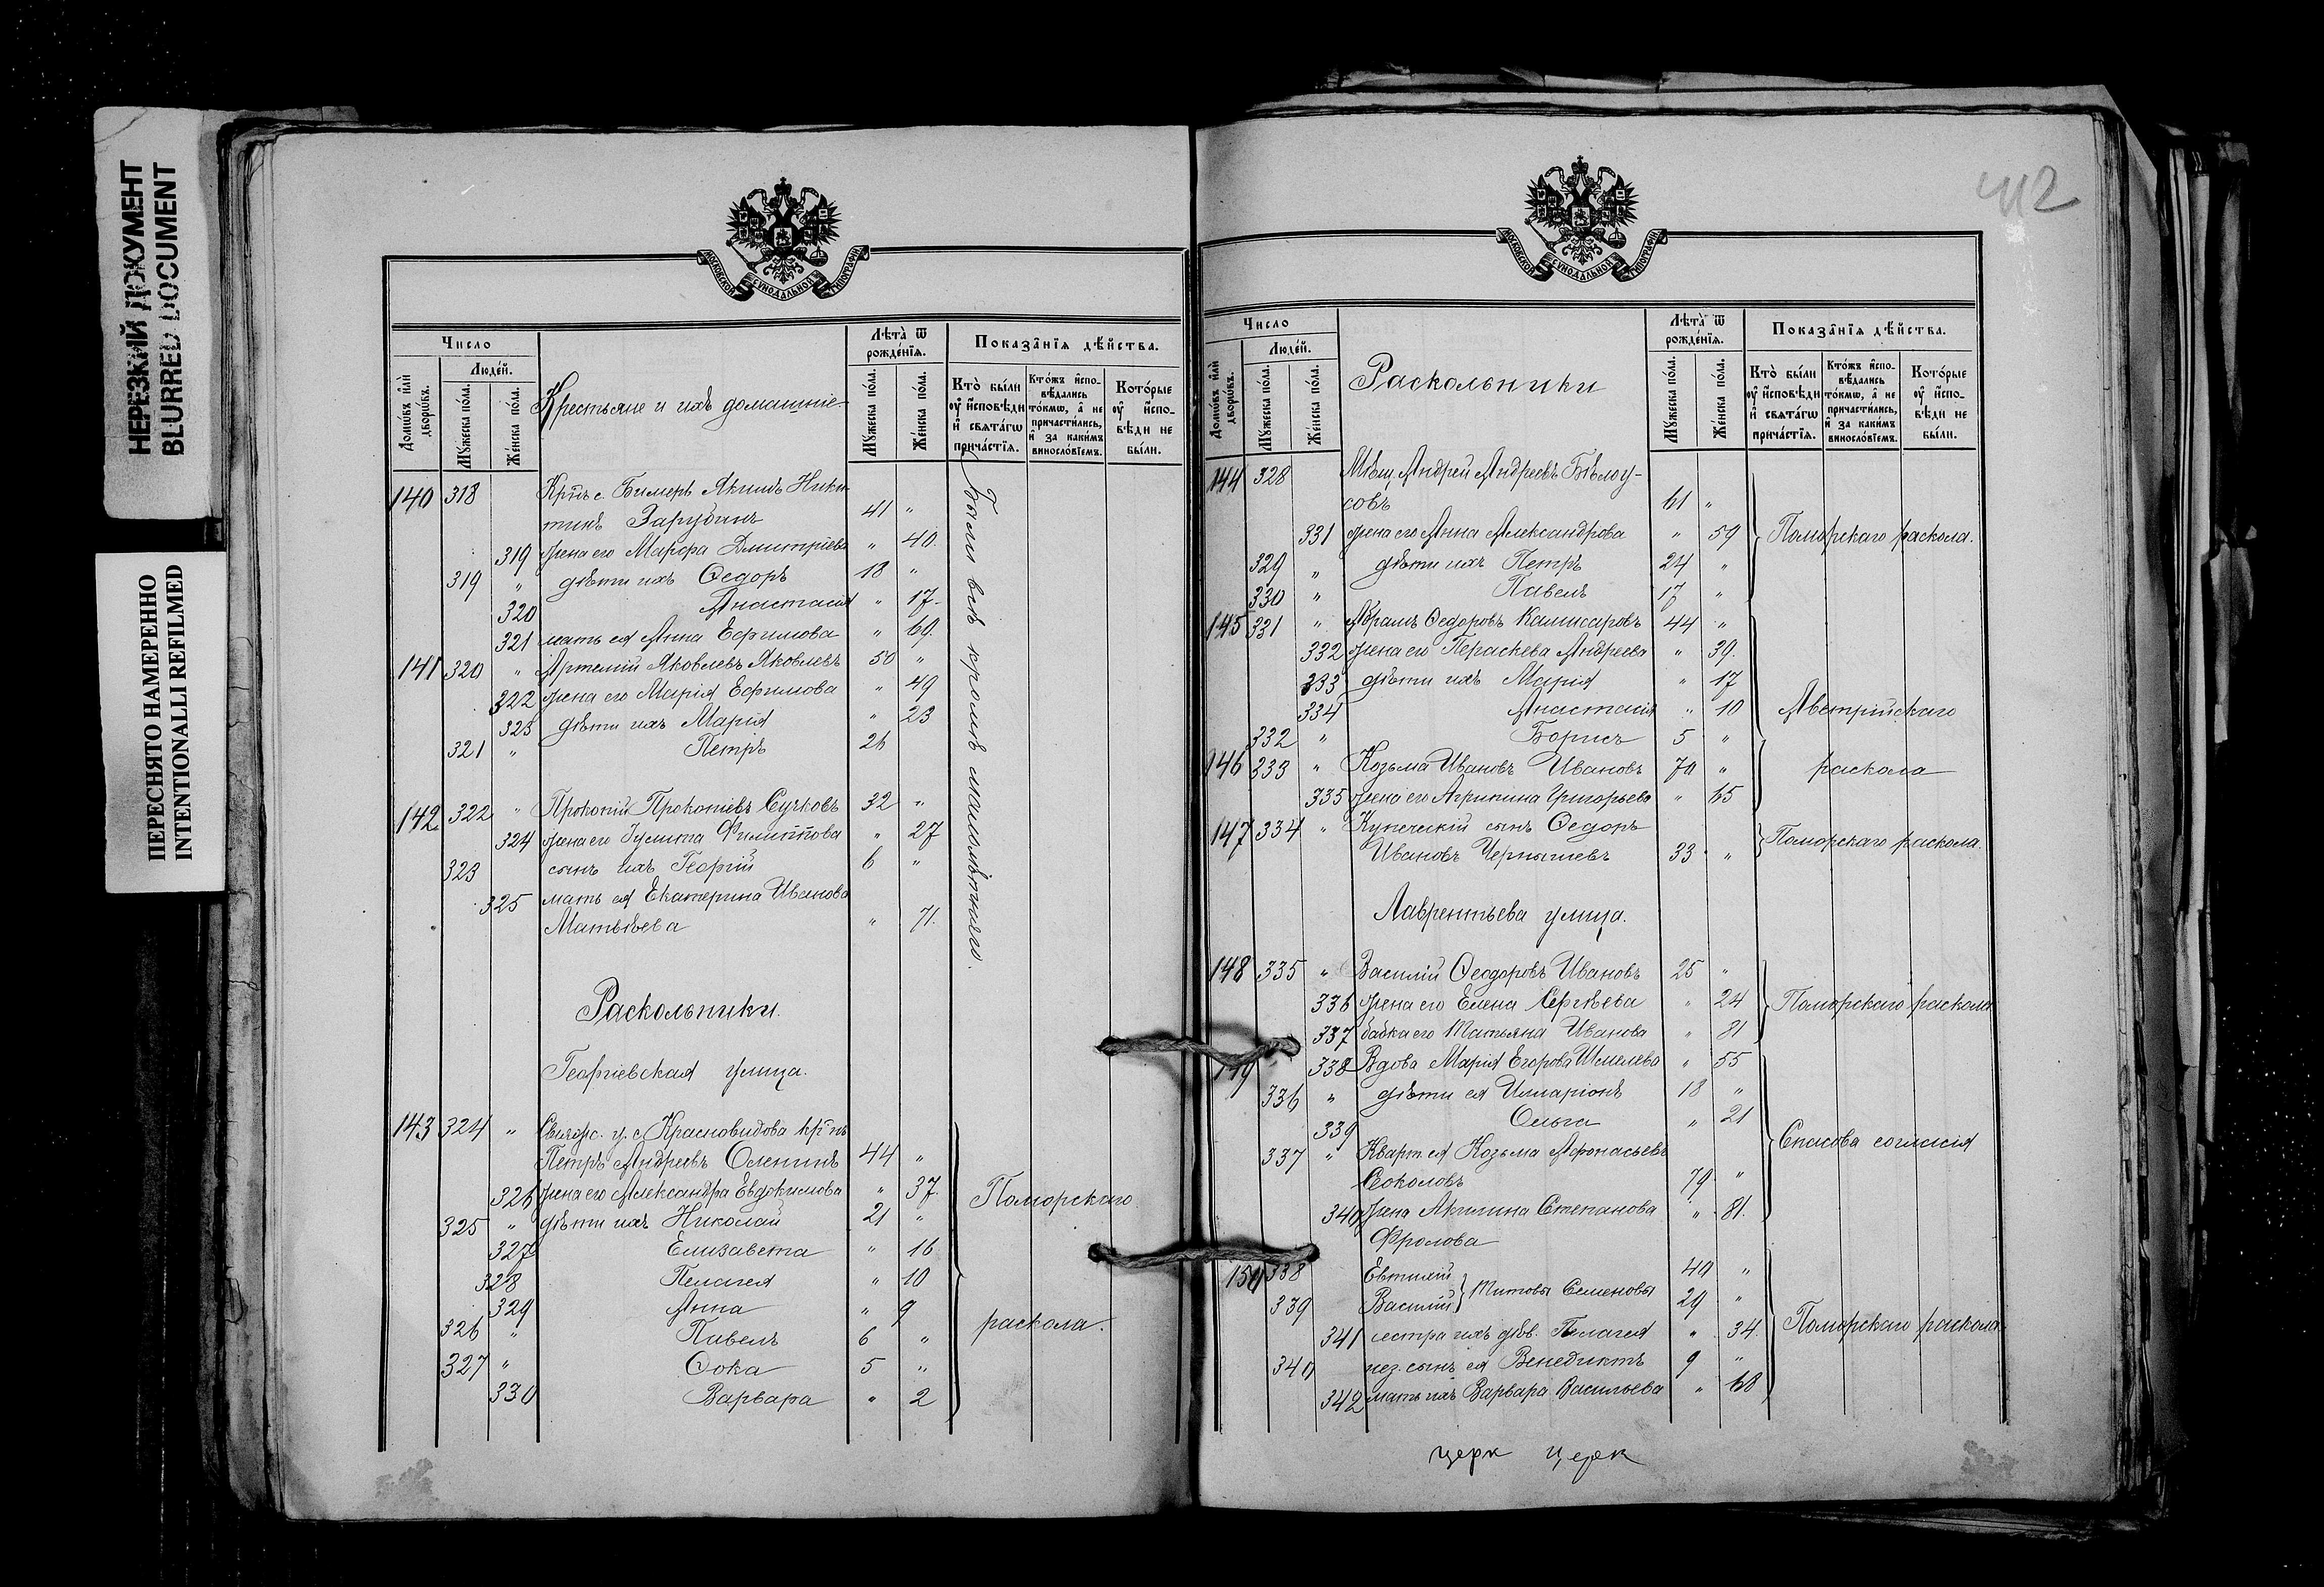 НЕРЕЗКИЙ ДОКУМЕНТ
BLURRED DOCUMENT
ПЕРЕСНЯТО НАМЕРЕННО
INTENTIONALLI REFILMED
МОСКОВСКОЙ СУНОДАЛЬНОЙ ТИПОГРАФІИ
Число
Людей.
Домовъ или дворовъ.
Мужеска пола.
Женска пола.
Крестьяне и ихъ домашніе.
Лѣта ѿ рожденія.
Мужеска пола.
Женска пола.
Показанія дѣйства.
Кто были у исповѣди и святагѡ причастія.
Ктожъ исповѣдались токмѡ, а не причастились, и за какимъ винословіемъ.
Которые у исповѣди не были.
140 318 Крнъ с. Бимеръ Акимъ Ники-
тинъ Зарубинъ 41 "
319 жена его Марѳа Дмитріева " 40.
319 " дѣти ихъ Ѳедоръ 18 "
320 Анастасія " 17.
321 мать ея Анна Ефимова " 69.
141 320 " Артемій Яковлевъ Яковлевъ 50 "
322 жена его Марія Ефимова " 49
323 дѣти ихъ Марія " 23
321 " Петръ 26
142. 322 " Прокопій Прокопіевъ Сучковъ 32 "
324 жена его Іулитта Филиппова " 27
323 сынъ ихъ Георгій 6 "
325 мать ея Екатерина Иванова
Матвѣева " 71.
Были всѣ кромѣ малолѣтняго.
Раскольники.
Георгіевская улица.
143 324 " Свіяжс. у. с. Красновидова крнъ
Петръ Андреевъ Оленинъ 44 "
326 жена его Александра Евдокимова " 37.
325 " дѣти ихъ Николай 21 "
327 Елизавета " 16
328 Пелагея " 10
329 Анна " 9
326 " Павелъ 6 "
327 " Ѳока 5 "
330 Варвара " 2
Поморскаго
раскола.
412
МОСКОВСКОЙ СУНОДАЛЬНОЙ ТИПОГРАФІИ
Число
Людей.
Домовъ или дворовъ.
Мужеска пола.
Женска пола.
Раскольники
Лѣта ѿ рожденія.
Мужеска пола.
Женска пола.
Показанія дѣйства.
Кто были у исповѣди и святагѡ причастія.
Ктожъ исповѣдались токмѡ, а не причастились, и за какимъ винословіемъ.
Которые у исповѣди не были.
144 328 Мѣщ. Андрей Андреевъ Бѣлоу-
совъ 61 "
331 жена его Анна Александрова " 59 Поморскаго раскола.
329 " дѣти ихъ Петръ 24 "
330 " Павелъ 17 "
145 331 " Абрамъ Ѳедоровъ Камисаровъ 44 "
332 жена его Параскева Андреева " 39.
333 дѣти ихъ Марія " 17
334 Анастасія " 10 Австрійскаго
332 " Борисъ 5 "
146 333 " Козьма Ивановъ Ивановъ 70 " раскола
335 жена его Агрипина Григорьева " 65
147 334 " Купеческій сынъ Ѳедоръ
Ивановъ Чернышевъ 33 " Поморскаго раскола.
Лаврентьева улица.
148 335 " Василій Ѳеодоровъ Ивановъ 25 "
336 жена его Елена Сергѣева " 24 Поморскаго раскола
337 бабка его Татьяна Иванова " 81
149 338 Вдова Марія Егорова Шмелева " 55
336 " дѣти ея Илларіонъ 18 "
339 Ольга " 21
Спасова согласія
337 " Кварт. ея Козьма Афонасьевъ
Соколовъ 79 "
340 жена Акилина Степанова " 81.
Фролова
150 338 Евтихій 40 "
339 Василій } Титовы Семеновы 29 "
341 сестра ихъ дѣв. Пелагея " 34. Поморскаго раскола
340 нез. сынъ ея Венедиктъ 9 "
342 мать ихъ Варвара Васильева " 68
церк церк